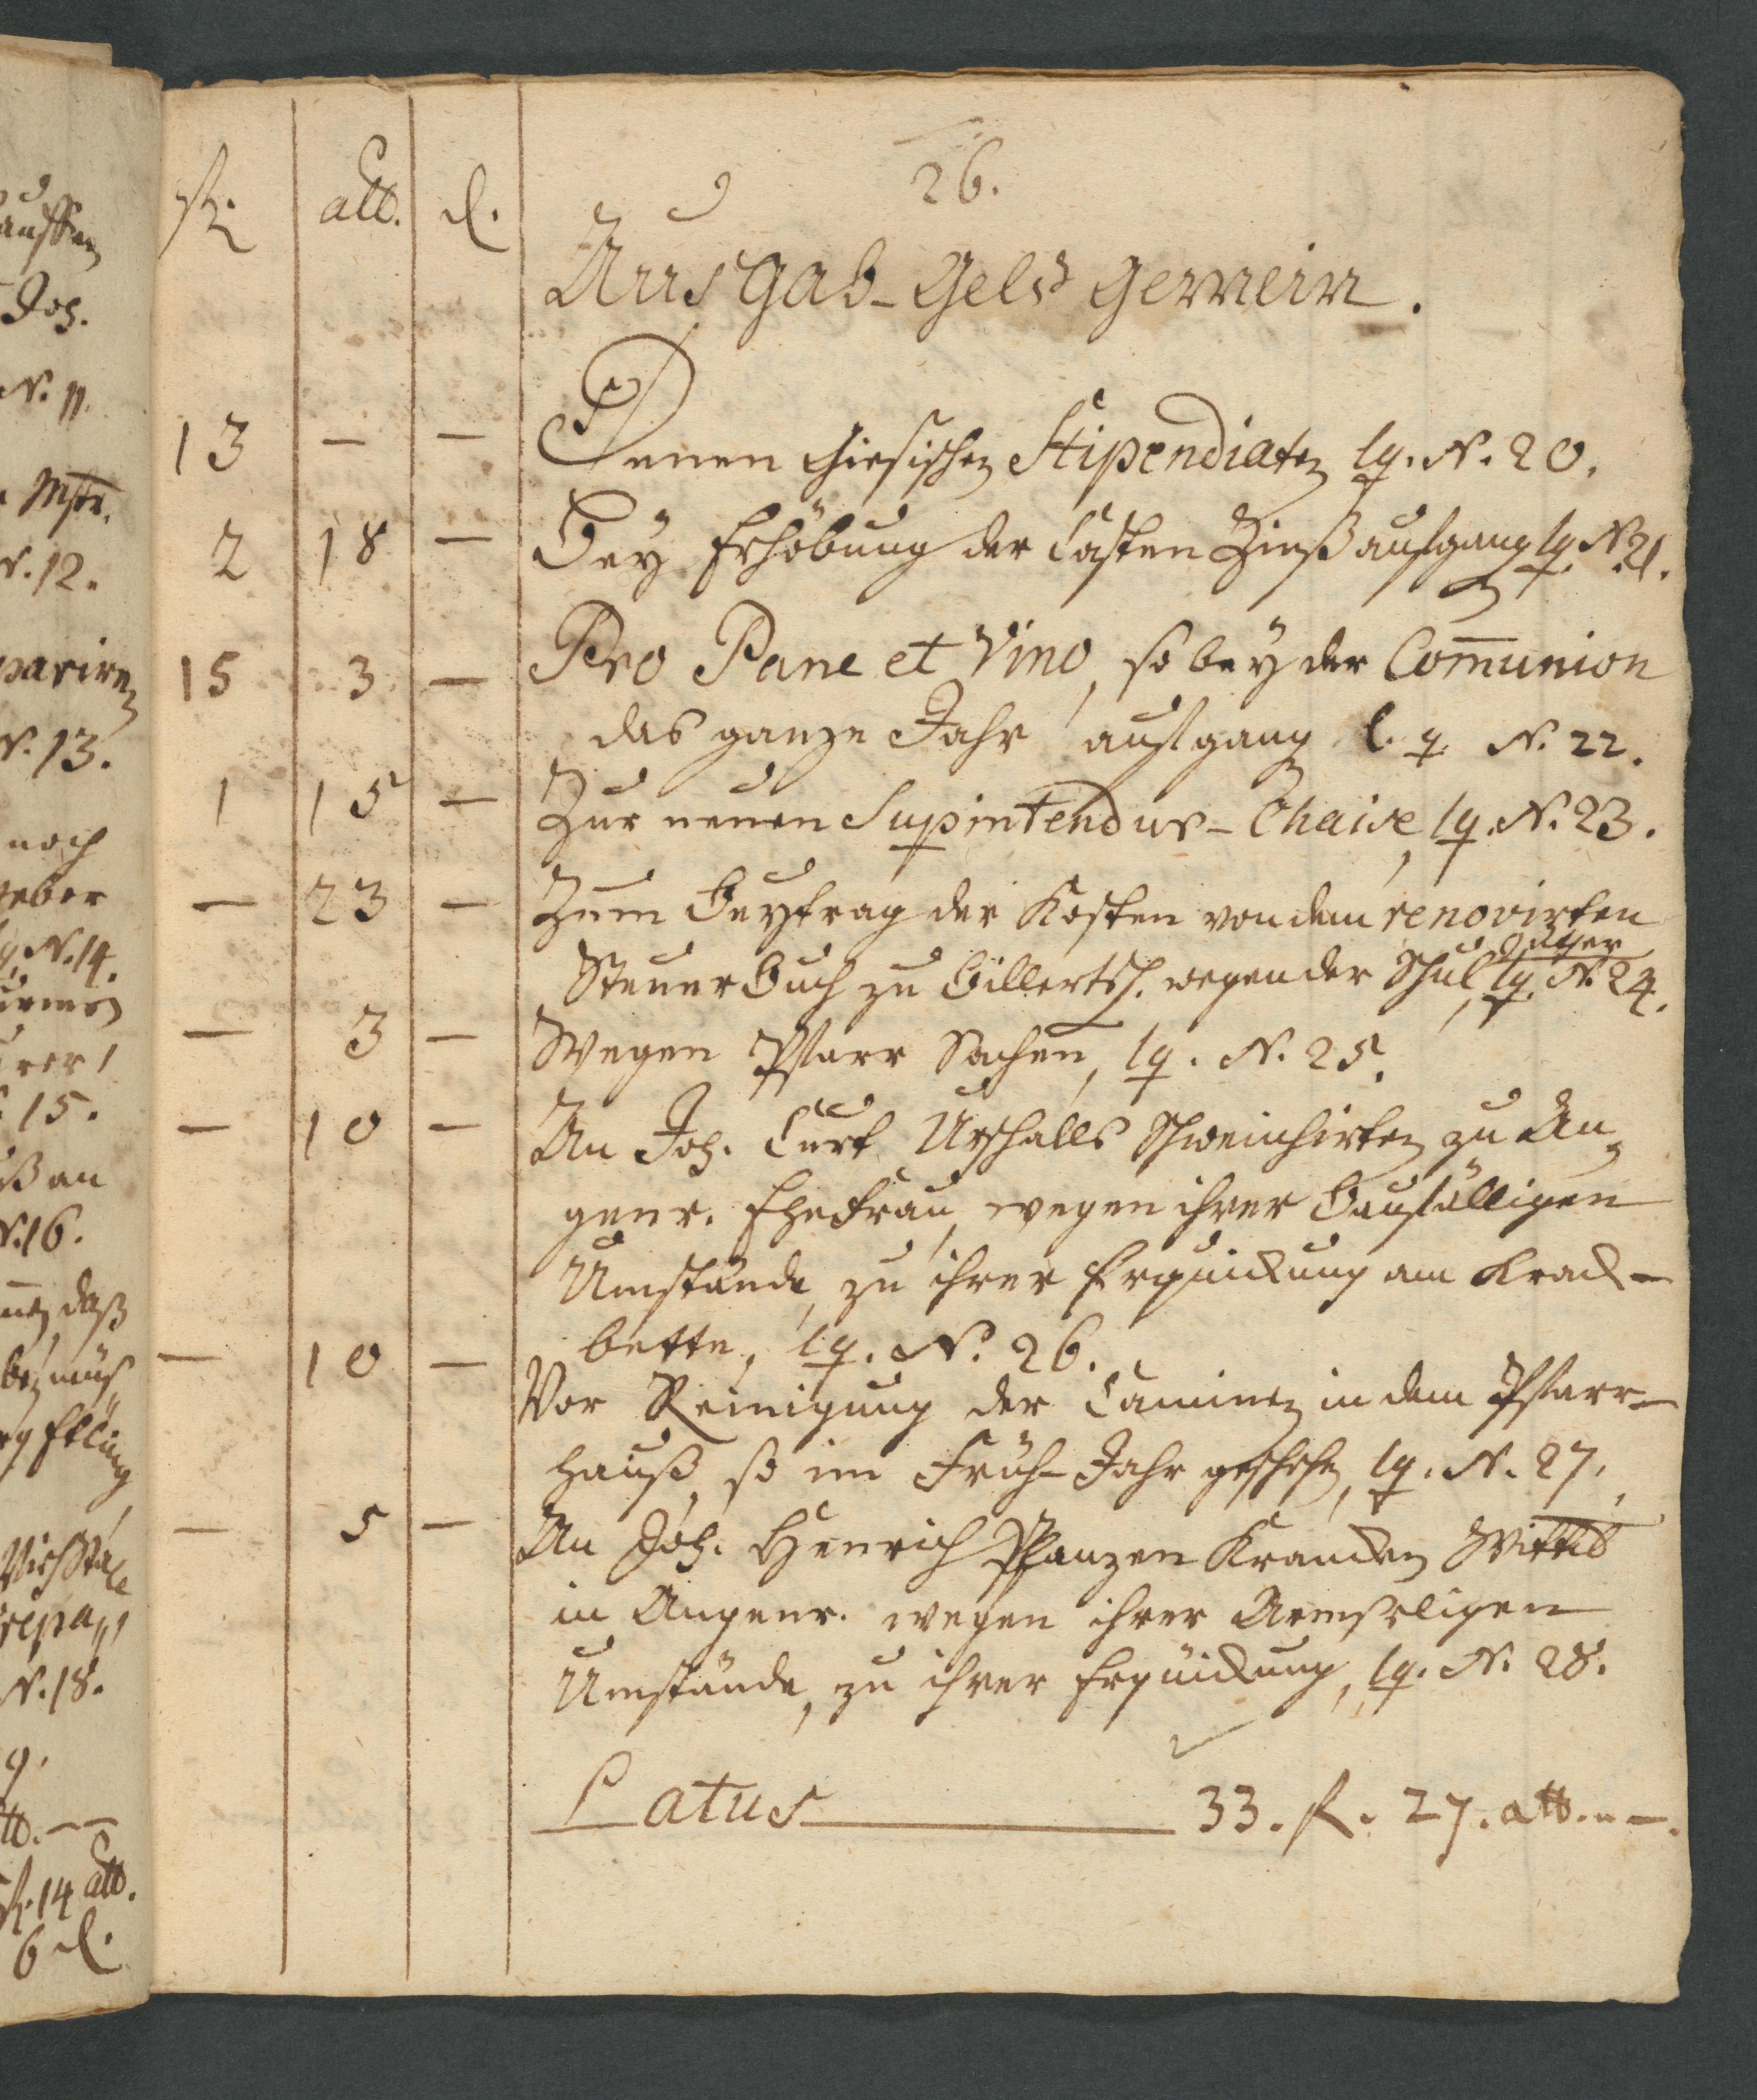 26.
fl. alb. d.
Ausgab-Geld Gemein.
13 — — Denen Giesischen Stipendiaten lq. N. 20.
2 18 — Bey Erhöbung der Casten Zinß aufgang lq. N. 21.
15 3 — Pro Pane et Vino, so bey der Com̄union
das ganze Jahr aufgang l. q. N. 22.
1 15 — Zur neuen Supintendur-Chaise, lq. N. 23.
— 23 — Zum Beytrag der Kosten von dem renovirten
Steuer Buch zu Billertsh. wegen der Schul güther, lq. N. 24.
— 3 — Wegen Pfarr Sachen, lq. N. 25.
— 10 — An Joh. Curt Urschalls Schweinhirten zu An
genr. Ehefrau, wegen ihrer Baufälligen
Umstände, zu ihrer Erquickung am Krack-
bette, lq. N. 26.
— 10 — Vor Reinigung der Caminen in dem Pfarr-
hauß, so im Früh-Jahr geschehen, lq. N. 27.
— 5 — An Joh. Henrich Pfanzen Krancken Wittib
in Angenr. wegen ihrer Armseligen
Umstände, zu ihrer Erquickung, lq. N. 28.
Latus 33. fl. 27. alb. —.
auffen
Joh.
N. 11.
Mstr.
N. 12.
pariren
N. 13.
noch
geber
lq. N. 14.
15.
ß an
N. 16.
daß
N. 18.
fl. 14 alb.
6 d.